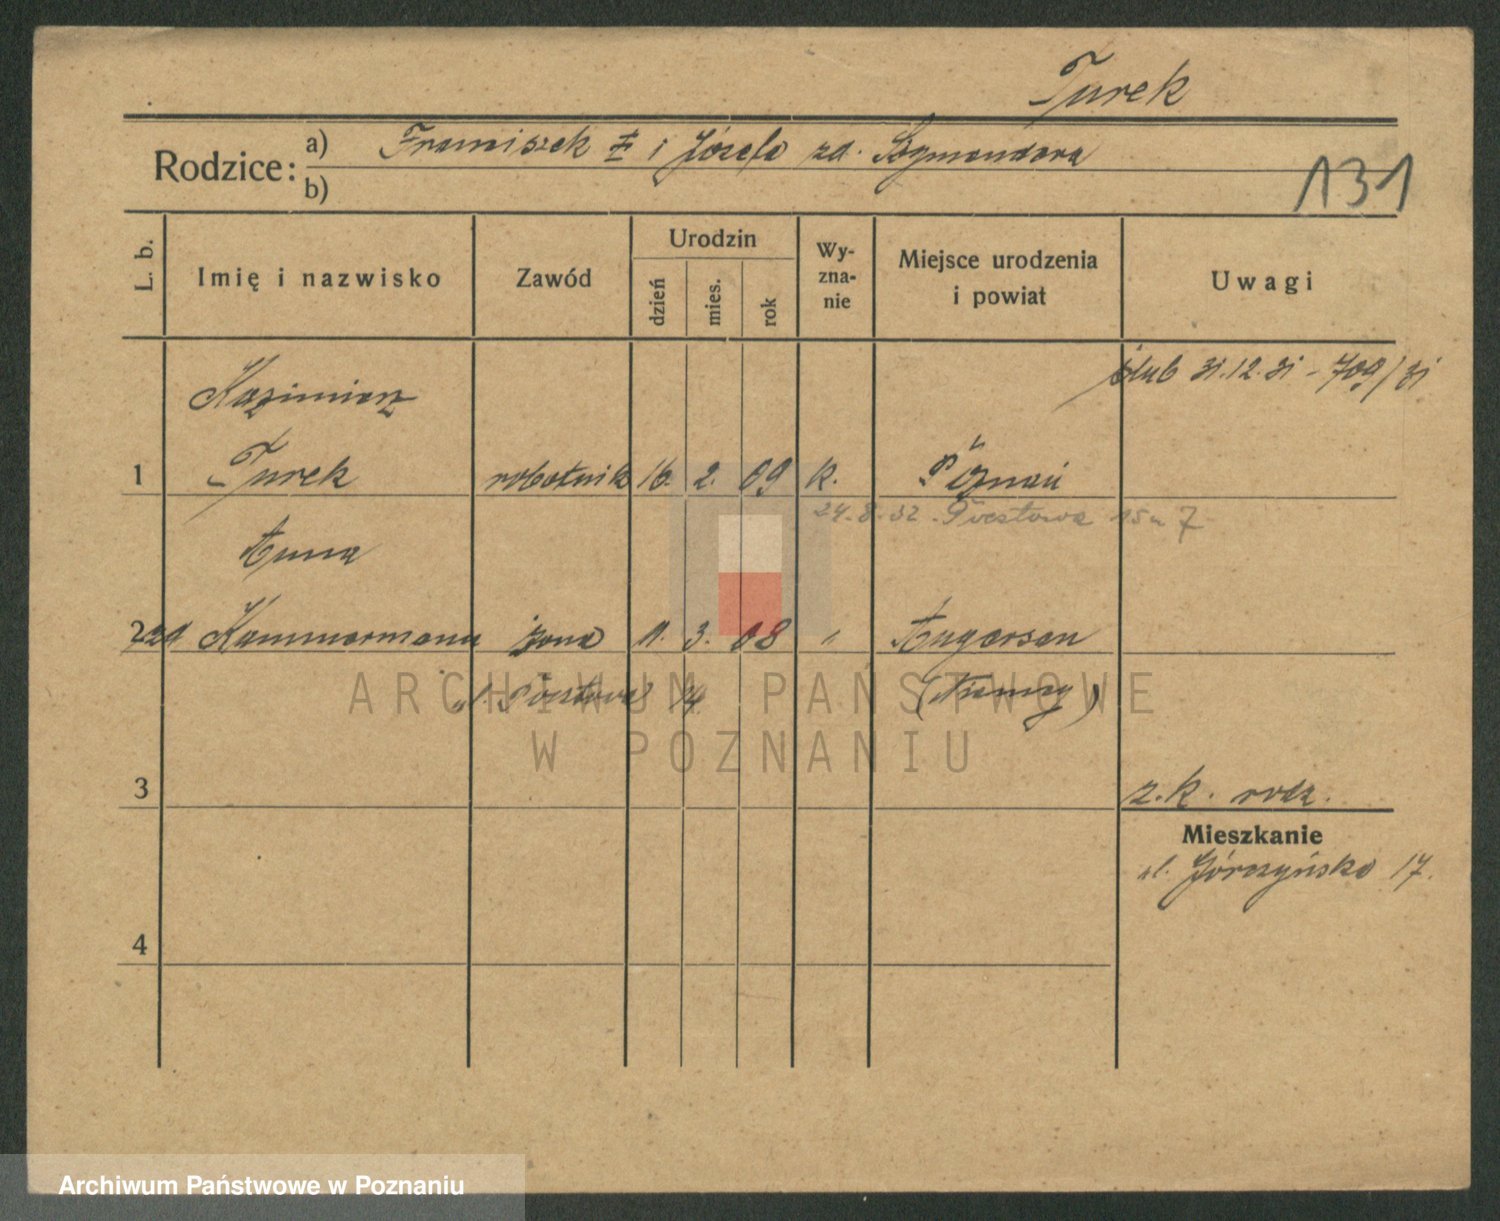 Turek
Rodzice: a) Franciszek i Józefa zd.
b)
131
L. b. Imię i nazwisko Zawód Urodzin dzień mies. rok Wyznanie Miejsce urodzenia i powiat Uwagi
ślub 31.12.31 - 709/31
Kazimierz
1 Turek robotnik 16. 2. 09 k. Poznań
24.8.32. Pocztowa 15 7
Anna
2 zd Kammermann żona 11. 3. 08 " Angersen
ul. Pocztowa 14 (Niemcy)
ARCHIWUM PAŃSTWOWE
W POZNANIU
3 z. k. rodz.
Mieszkanie
ul. Górczyńska 17.
4
Archiwum Państwowe w Poznaniu